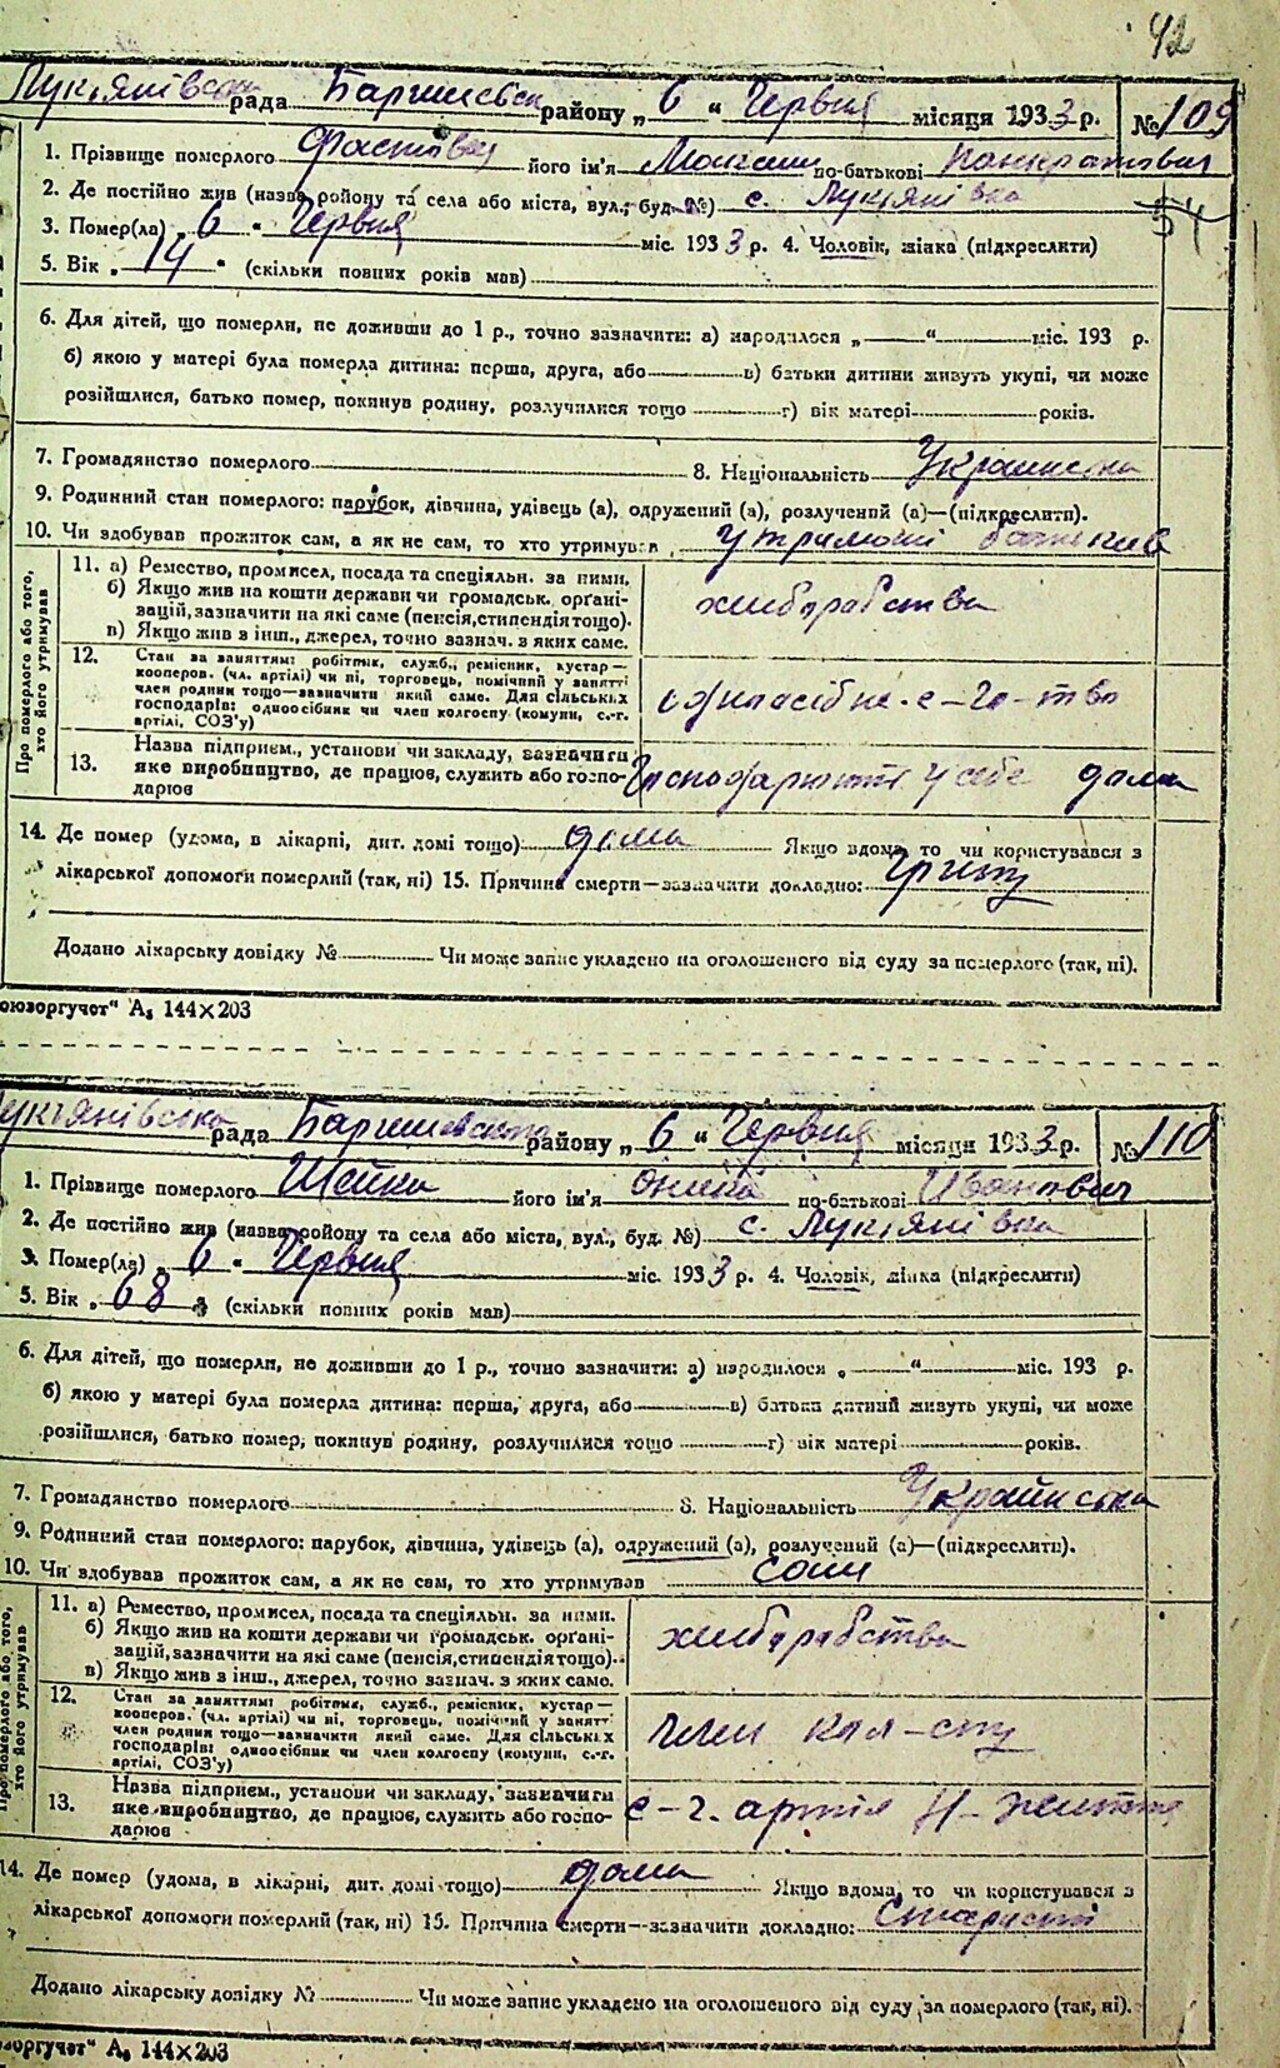 42
Лукянівська рада Баришевськ району „ 6 “ Червня місяця 1933 р. № 109
1. Прізвище померлого Фастовец його ім'я по-батькові Панкратович
2. Де постійно жив (назва ройону та села або міста, вул., буд. №) с. Лукянівка
3. Помер(ла) „ 6 “ Червня міс. 1933 р. 4. Чоловік, жінка (підкреслити)
5. Вік „ 14 “ (скільки повних років мав)
6. Для дітей, що померли, не доживши до 1 р., точно зазначити: а) народилося „ “ міс. 193 р.
б) якою у матері була померла дитина: перша, друга, або в) батьки дитини живуть укупі, чи може
розійшлися, батько помер, покинув родину, розлучилися тощо г) вік матері років.
7. Громадянство померлого 8. Національність Украинська
9. Родинний стан померлого: парубок, дівчина, удівець (а), одружений (а), розлучений (а)—(підкреслити).
10. Чи здобував прожиток сам, а як не сам, то хто утримував
Про померлого або того, хто його утримував
11. а) Ремество, промисел, посада та спеціяльн. за ними.
б) Якщо жив на кошти держави чи громадськ. орґані-
зацій, зазначити на які саме (пенсія, стипендія тощо).
в) Якщо жив з інш., джерел, точно зазнач. з яких саме.
хлиборабства
12. Стан за заняттям: робітник, служб., ремісник, кустар—
кооперов. (чл. артілі) чи ні, торговець, помічний у занятті
член родини тощо—зазначити який саме. Для сільських
господарів: одноосібник чи член колгоспу (комуни, с.-г.
артілі, СОЗ'у)
13. Назва підприєм., установи чи закладу, зазначити
яке виробництво, де працює, служить або госпо-
дарює
у себе дома
14. Де помер (удома, в лікарні, дит. домі тощо) дома Якщо вдома, то чи користувався з
лікарської допомоги померлий (так, ні) 15. Причина смерти—зазначити докладно: грипу
Додано лікарську довідку № Чи може запис укладено на оголошеного від суду за померлого (так, ні).
оюзоргучет“ А₅ 144×203
укянівська рада Баришевського району „ 6 “ Червня місяця 1933 р. № 110
1. Прізвище померлого Шейка його ім'я по-батькові Іванович
2. Де постійно жив (назва ройону та села або міста, вул., буд. №) с. Лукянівка
3. Помер(ла) „ 6 “ Червня міс. 1933 р. 4. Чоловік, жінка (підкреслити)
5. Вік „ 68 “ (скільки повних років мав)
6. Для дітей, що померли, не доживши до 1 р., точно зазначити: а) народилося „ “ міс. 193 р.
б) якою у матері була померла дитина: перша, друга, або в) батьки дитини живуть укупі, чи може
розійшлися, батько помер, покинув родину, розлучилися тощо г) вік матері років.
7. Громадянство померлого 8. Національність Украйнська
9. Родинний стан померлого: парубок, дівчина, удівець (а), одружений (а), розлучений (а)—(підкреслити).
10. Чи здобував прожиток сам, а як не сам, то хто утримував сам
Про померлого або того, хто його утримував
11. а) Ремество, промисел, посада та спеціяльн. за ними.
б) Якщо жив на кошти держави чи громадськ. орґані-
зацій, зазначити на які саме (пенсія, стипендія тощо).
в) Якщо жив з інш., джерел, точно зазнач. з яких само.
хлиборабства
12. Стан за заняттям: робітник, служб., ремісник, кустар—
кооперов. (чл. артілі) чи ні, торговець, помічний у занятт
член родини тощо—зазначити який саме. Для сільських
господарів: одноосібник чи член колгоспу (комуни, с.-г.
артілі, СОЗ'у)
член кол-спу
13. Назва підприєм., установи чи закладу, зазначити
яке виробництво, де працює, служить або госпо-
дарює
с-г. артіл Н-життя
14. Де помер (удома, в лікарні, дит. домі тощо) дома Якщо вдома, то чи користувався з
лікарської допомоги померлий (так, ні) 15. Причина смерти—зазначити докладно: Старисті
Додано лікарську довідку № Чи може запис укладено на оголошеного від суду за померлого (так, ні).
зоргучет“ А₅ 144×203